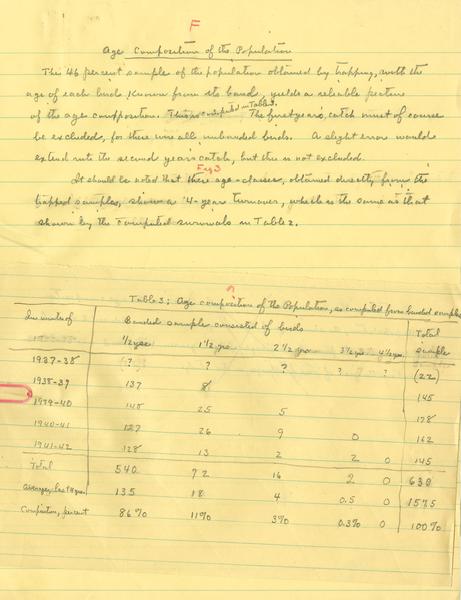 F
Age Composition of the Population
This 46 percent sample of the population obtained by trapping, with the
age of each bird known from its band, yields a reliable picture
of the age composition. This is computed in Table 3. The first years catch must of course
be excluded, for these were all unbanded birds. A slight error would
extend into the second years catch, but this is not excluded.
Fig 3
It should be noted that these age-classes, obtained directly from the
trapped samples, show a 4-year turnover, which is the same as that
shown by the computed survivals in Table 2.
Table 3; Age composition of the Population, as computed from banded samples
In winter of Banded sample consisted of birds Total sample
1/2 yrs 1 1/2 yrs 2 1/2 yrs 3 1/2 yrs 4 1/2 yrs
1937-38 ? ? ? ? ? (22)
1938-39 137 8 145
1939-40 148 25 5 178
1940-41 127 26 9 0 162
1941-42 128 13 2 2 0 145
Total 540 72 16 2 0 630
average, last 4 years 135 18 4 0.5 0 157.5
Composition, percent 86% 11% 3% 0.3% 0 100%